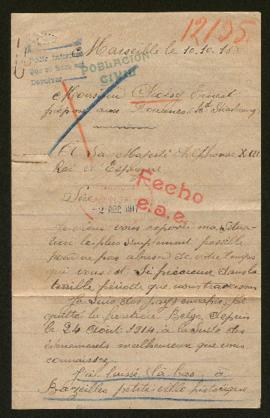 12135
Marseille le 10.10.
POBLACION
CIVIL
Monsieur
A Sa Majesté Alphonse XIII
Roi d'Espagne
Sire
Fecho
e.a.e.
Je viens vous exposer ma situa-
tion le plus simplement possible
pour ne pas abuser de votre temps
qui vous est si précieux dans la
terrible période que nous traversons
Je suis des pays envahis, j'ai
quitté la frontière Belge depuis
le 24 Août 1914, à la suite des
évènements malheureux que vous
connaissez
J'ai laissé là bas, à
Bazeilles petite ville historique